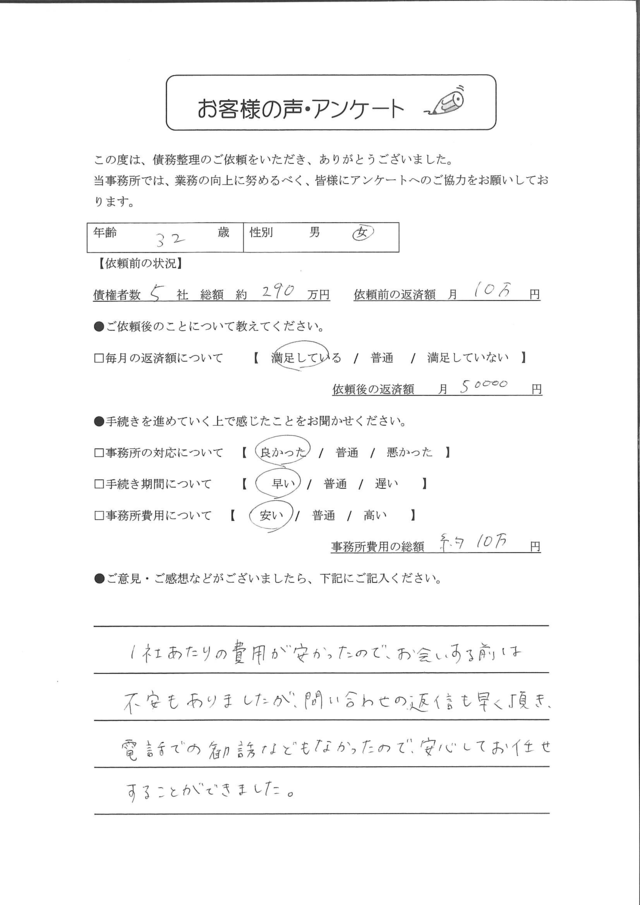 お客様の声・アンケート
この度は、債務整理のご依頼をいただき、ありがとうございました。
当事務所では、業務の向上に努めるべく、皆様にアンケートへのご協力をお願いしてお
ります。
年齢 32 歳 性別 男 女
【依頼前の状況】
債権者数 5 社 総額 約 290 万円 依頼前の返済額 月 10万 円
●ご依頼後のことについて教えてください。
□毎月の返済額について 【 満足している / 普通 / 満足していない 】
依頼後の返済額 月 50000 円
●手続きを進めていく上で感じたことをお聞かせください。
□事務所の対応について 【 良かった / 普通 / 悪かった 】
□手続き期間について 【 早い / 普通 / 遅い 】
□事務所費用について 【 安い / 普通 / 高い 】
事務所費用の総額 約10万 円
●ご意見・ご感想などがございましたら、下記にご記入ください。
1社あたりの費用が安かったので、お会いする前は
不安もありましたが、問い合わせの返信も早く頂き、
電話での勧誘などもなかったので、安心してお任せ
することができました。